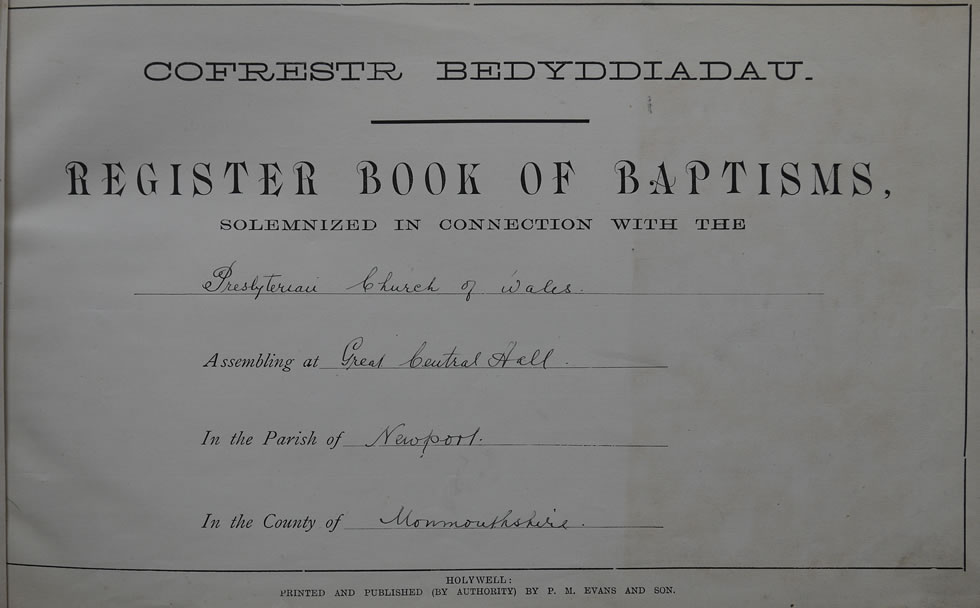 COFRESTR BEDYDDIADAU.
REGISTER BOOK OF BAPTISMS,
SOLEMNIZED IN CONNECTION WITH THE
Presbyterian Church of Wales.
Assembling at Great Central Hall.
In the Parish of Newport.
In the County of Monmouthshire.
HOLYWELL:
PRINTED AND PUBLISHED (BY AUTHORITY) BY P. M. EVANS AND SON.